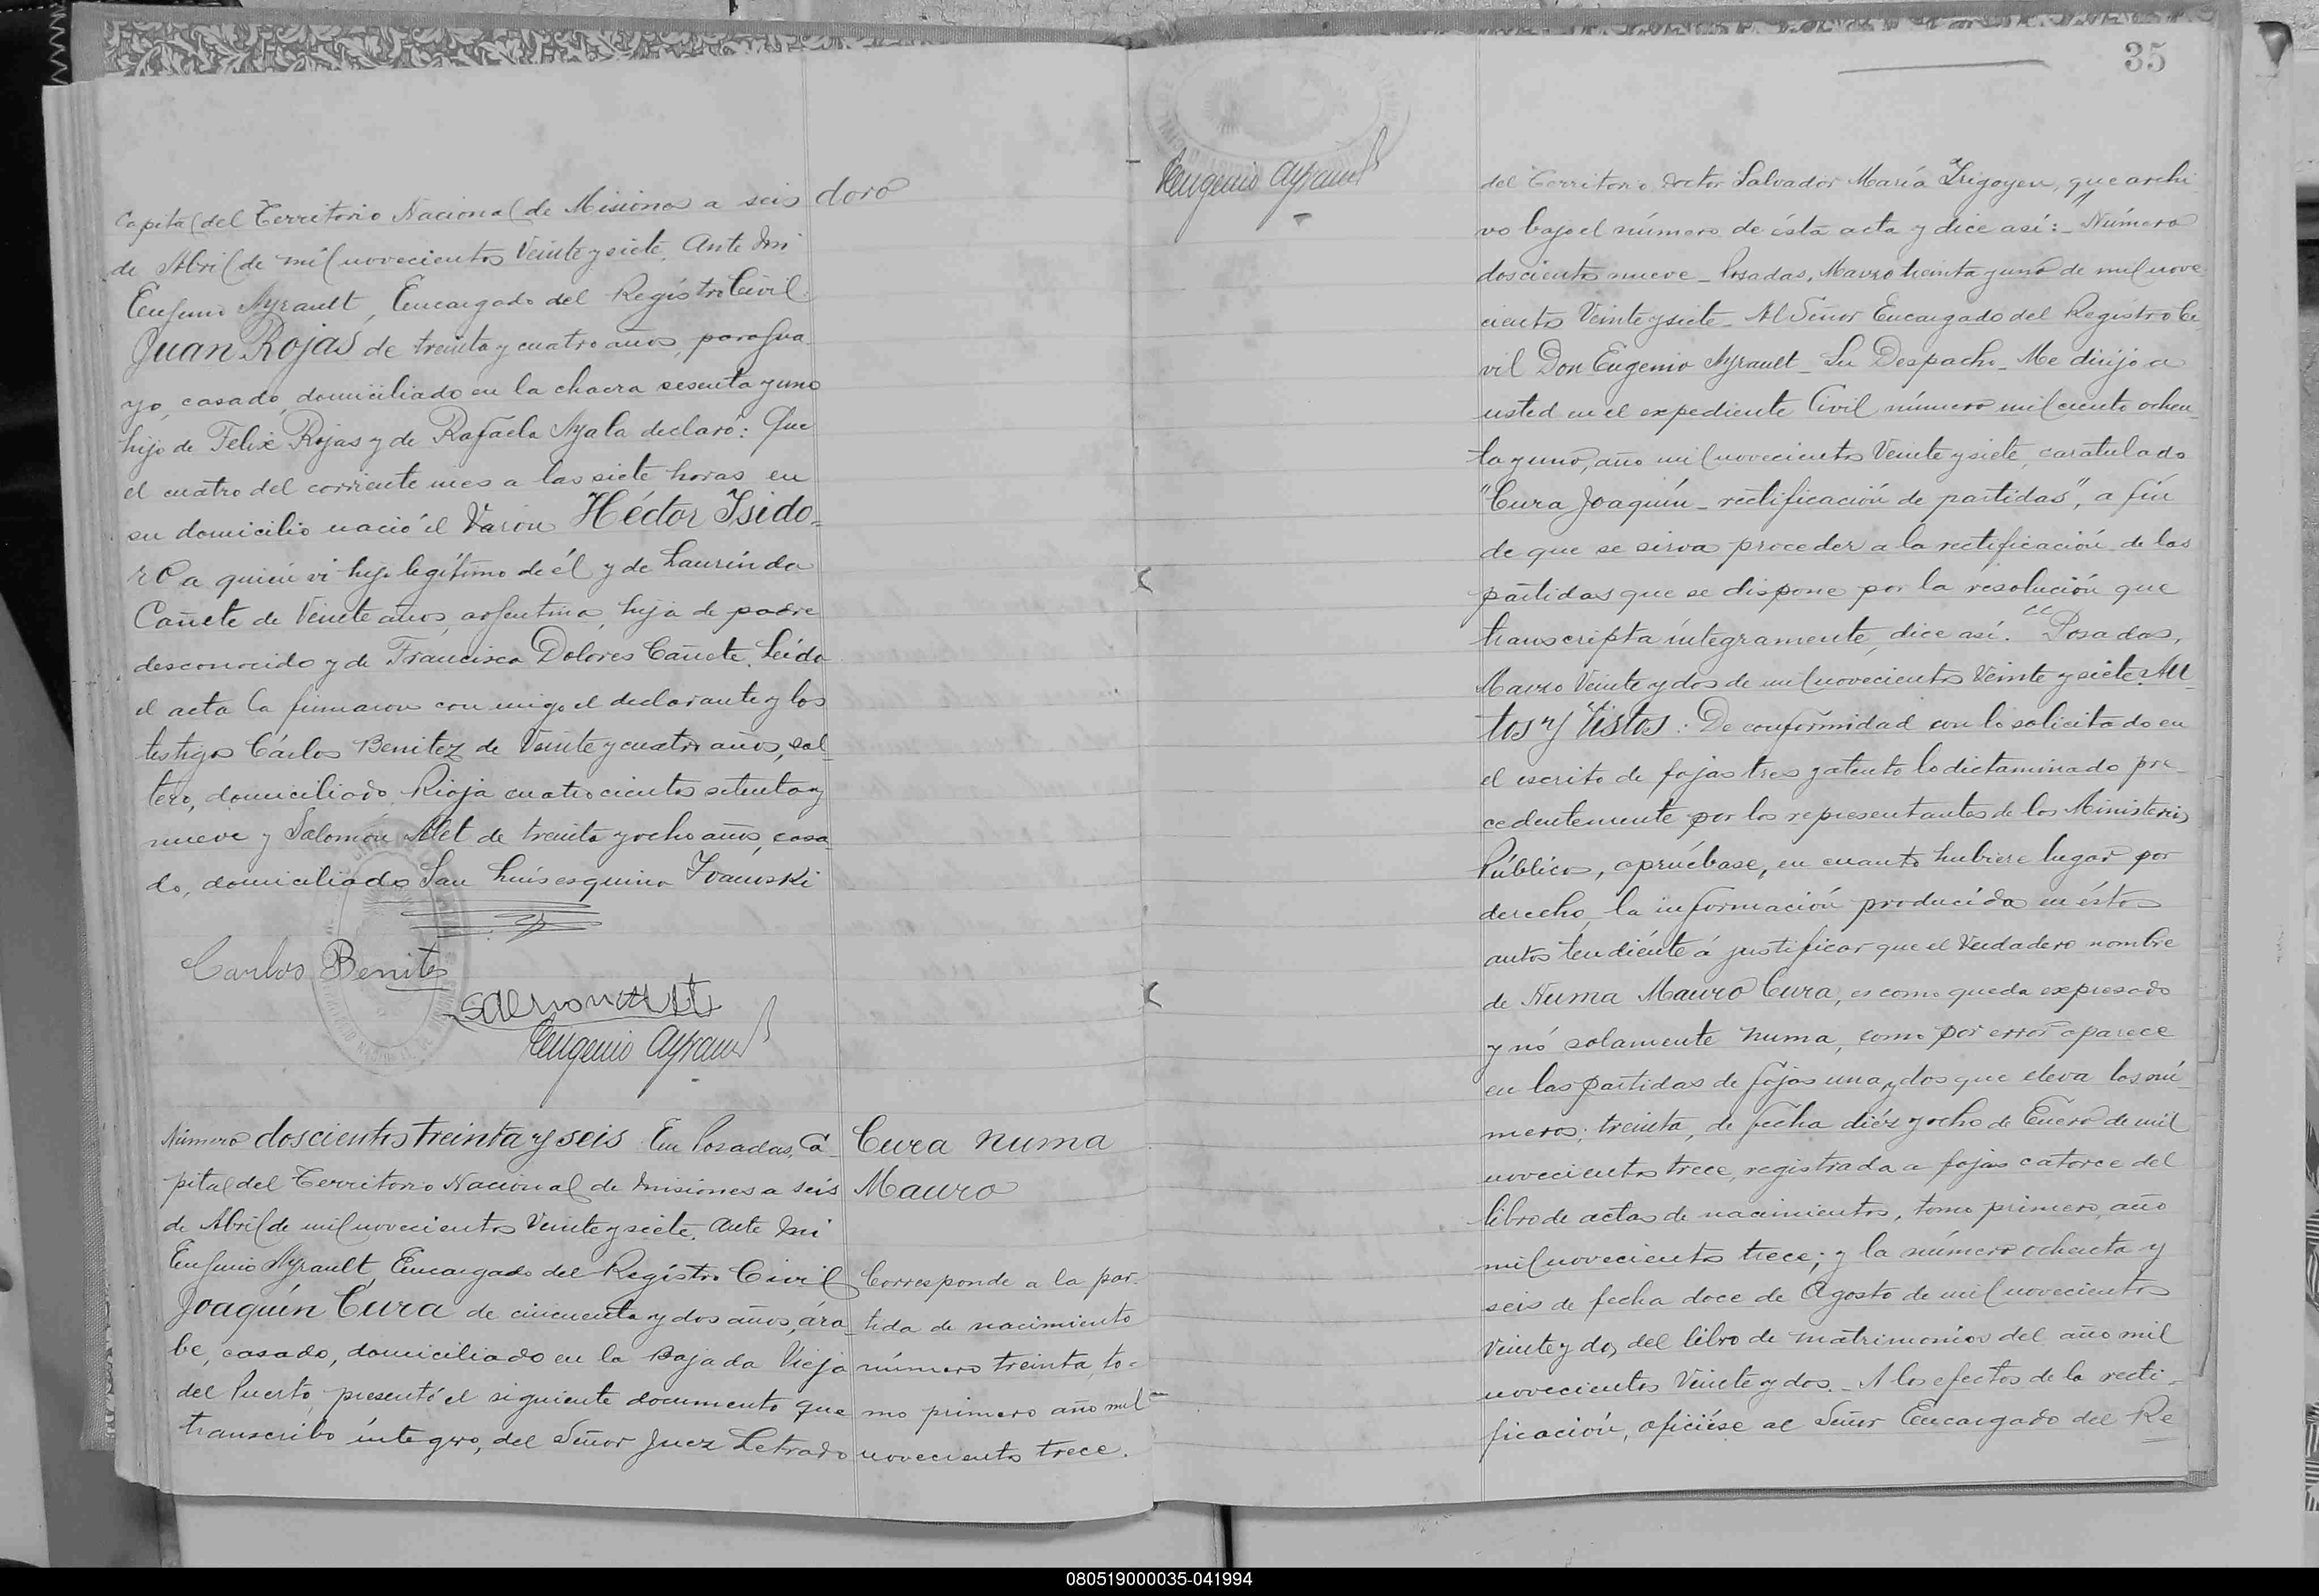 Capital del Territorio Nacional de Misiones a seis
doro
de Abril de mil novecientos Veinte y siete. Ante mi
Eugenio Ayrault, Encargado del Registro Civil.
Juan Rojas de treinta y cuatro años, paragua
yo, casado, domiciliado en la chacra sesenta y uno
hijo de Felix Rojas y de Rafaela Ayala declaró: Que
el cuatro del corriente mes a las siete horas en
su domicilio nació el Varon Héctor Isido-
ro a quien vi hijo legítimo de él y de Laurinda
Cañete de Veinte años, argentina, hija de padre
desconocido y de Francisca Dolores Cañete. Leída
el acta la firmaron con migo el declarante y los
testigos Cárlos Benitez de Veinte y cuatro años, sol
tero, domiciliado Rioja cuatrocientos setenta y
nueve y Salomón Alet de treinta y ocho años, casa
do, domiciliado San Luis esquina Ivanoski
Carlos Benites
Eugenio Ayrault
Número doscientos treinta y seis En Posadas, Ca
pital del Territorio Nacional de Misiones a seis
de Abril de mil novecientos Veinte y siete. Ante mi
Eugenio Ayrault, Encargado del Registro Civil
Joaquín Cura de cincuenta y dos años, ára
be, casado, domiciliado en la Bajada Vieja
del Puerto, presentó el siguiente documento que
transcribo íntegro, del Señor Juez Letrado
Cura Numa
Mauro
Corresponde a la par-
tida de nacimiento
número treinta, to-
mo primero año mil
novecientos trece.
35
Eugenio Ayrault
del Territorio doctor Salvador María Irigoyen, que archi
vo bajo el número de ésta acta y dice así:- Número
doscientos nueve - Posadas, Marzo treinta y uno de mil nove
cientos Veinte y siete - Al Señor Encargado del Registro Ci
vil Don Eugenio Ayrault - Su Despacho - Me dirijo a
usted en el expediente Civil número mil ciento ochen
ta y uno, año mil novecientos Veinte y siete, caratulado
"Cura Joaquín - rectificación de partidas", a fin
de que se sirva proceder a la rectificación de las
partidas que se dispone por la resolución que
transcripta íntegramente, dice así: "Posadas,
Marzo Veinte y dos de mil novecientos Veinte y siete. Au
tos y Vistos: De conformidad con lo solicitado en
el escrito de fojas tres y atento lo dictaminado pre-
cedentemente por los representantes de los Ministerios
Públicos, apruébase, en cuanto hubiere lugar por
derecho, la información producida en éstos
autos tendiente á justificar que el Verdadero nombre
de Numa Mauro Cura, es como queda expresado
y nó solamente Numa, como por error aparece
en las partidas de fojas una y dos que lleva los nú
meros; treinta, de fecha diéz y ocho de Enero de mil
novecientos trece, registrada a fojas catorce del
libro de actas de nacimientos, tomo primero, año
mil novecientos trece; y la número ochenta y
seis de fecha doce de Agosto de mil novecientos
Veinte y dos, del libro de matrimonios del año mil
novecientos Veinte y dos. - A los efectos de la recti-
ficación, ofíciese al Señor Encargado del Re
080519000035-041994